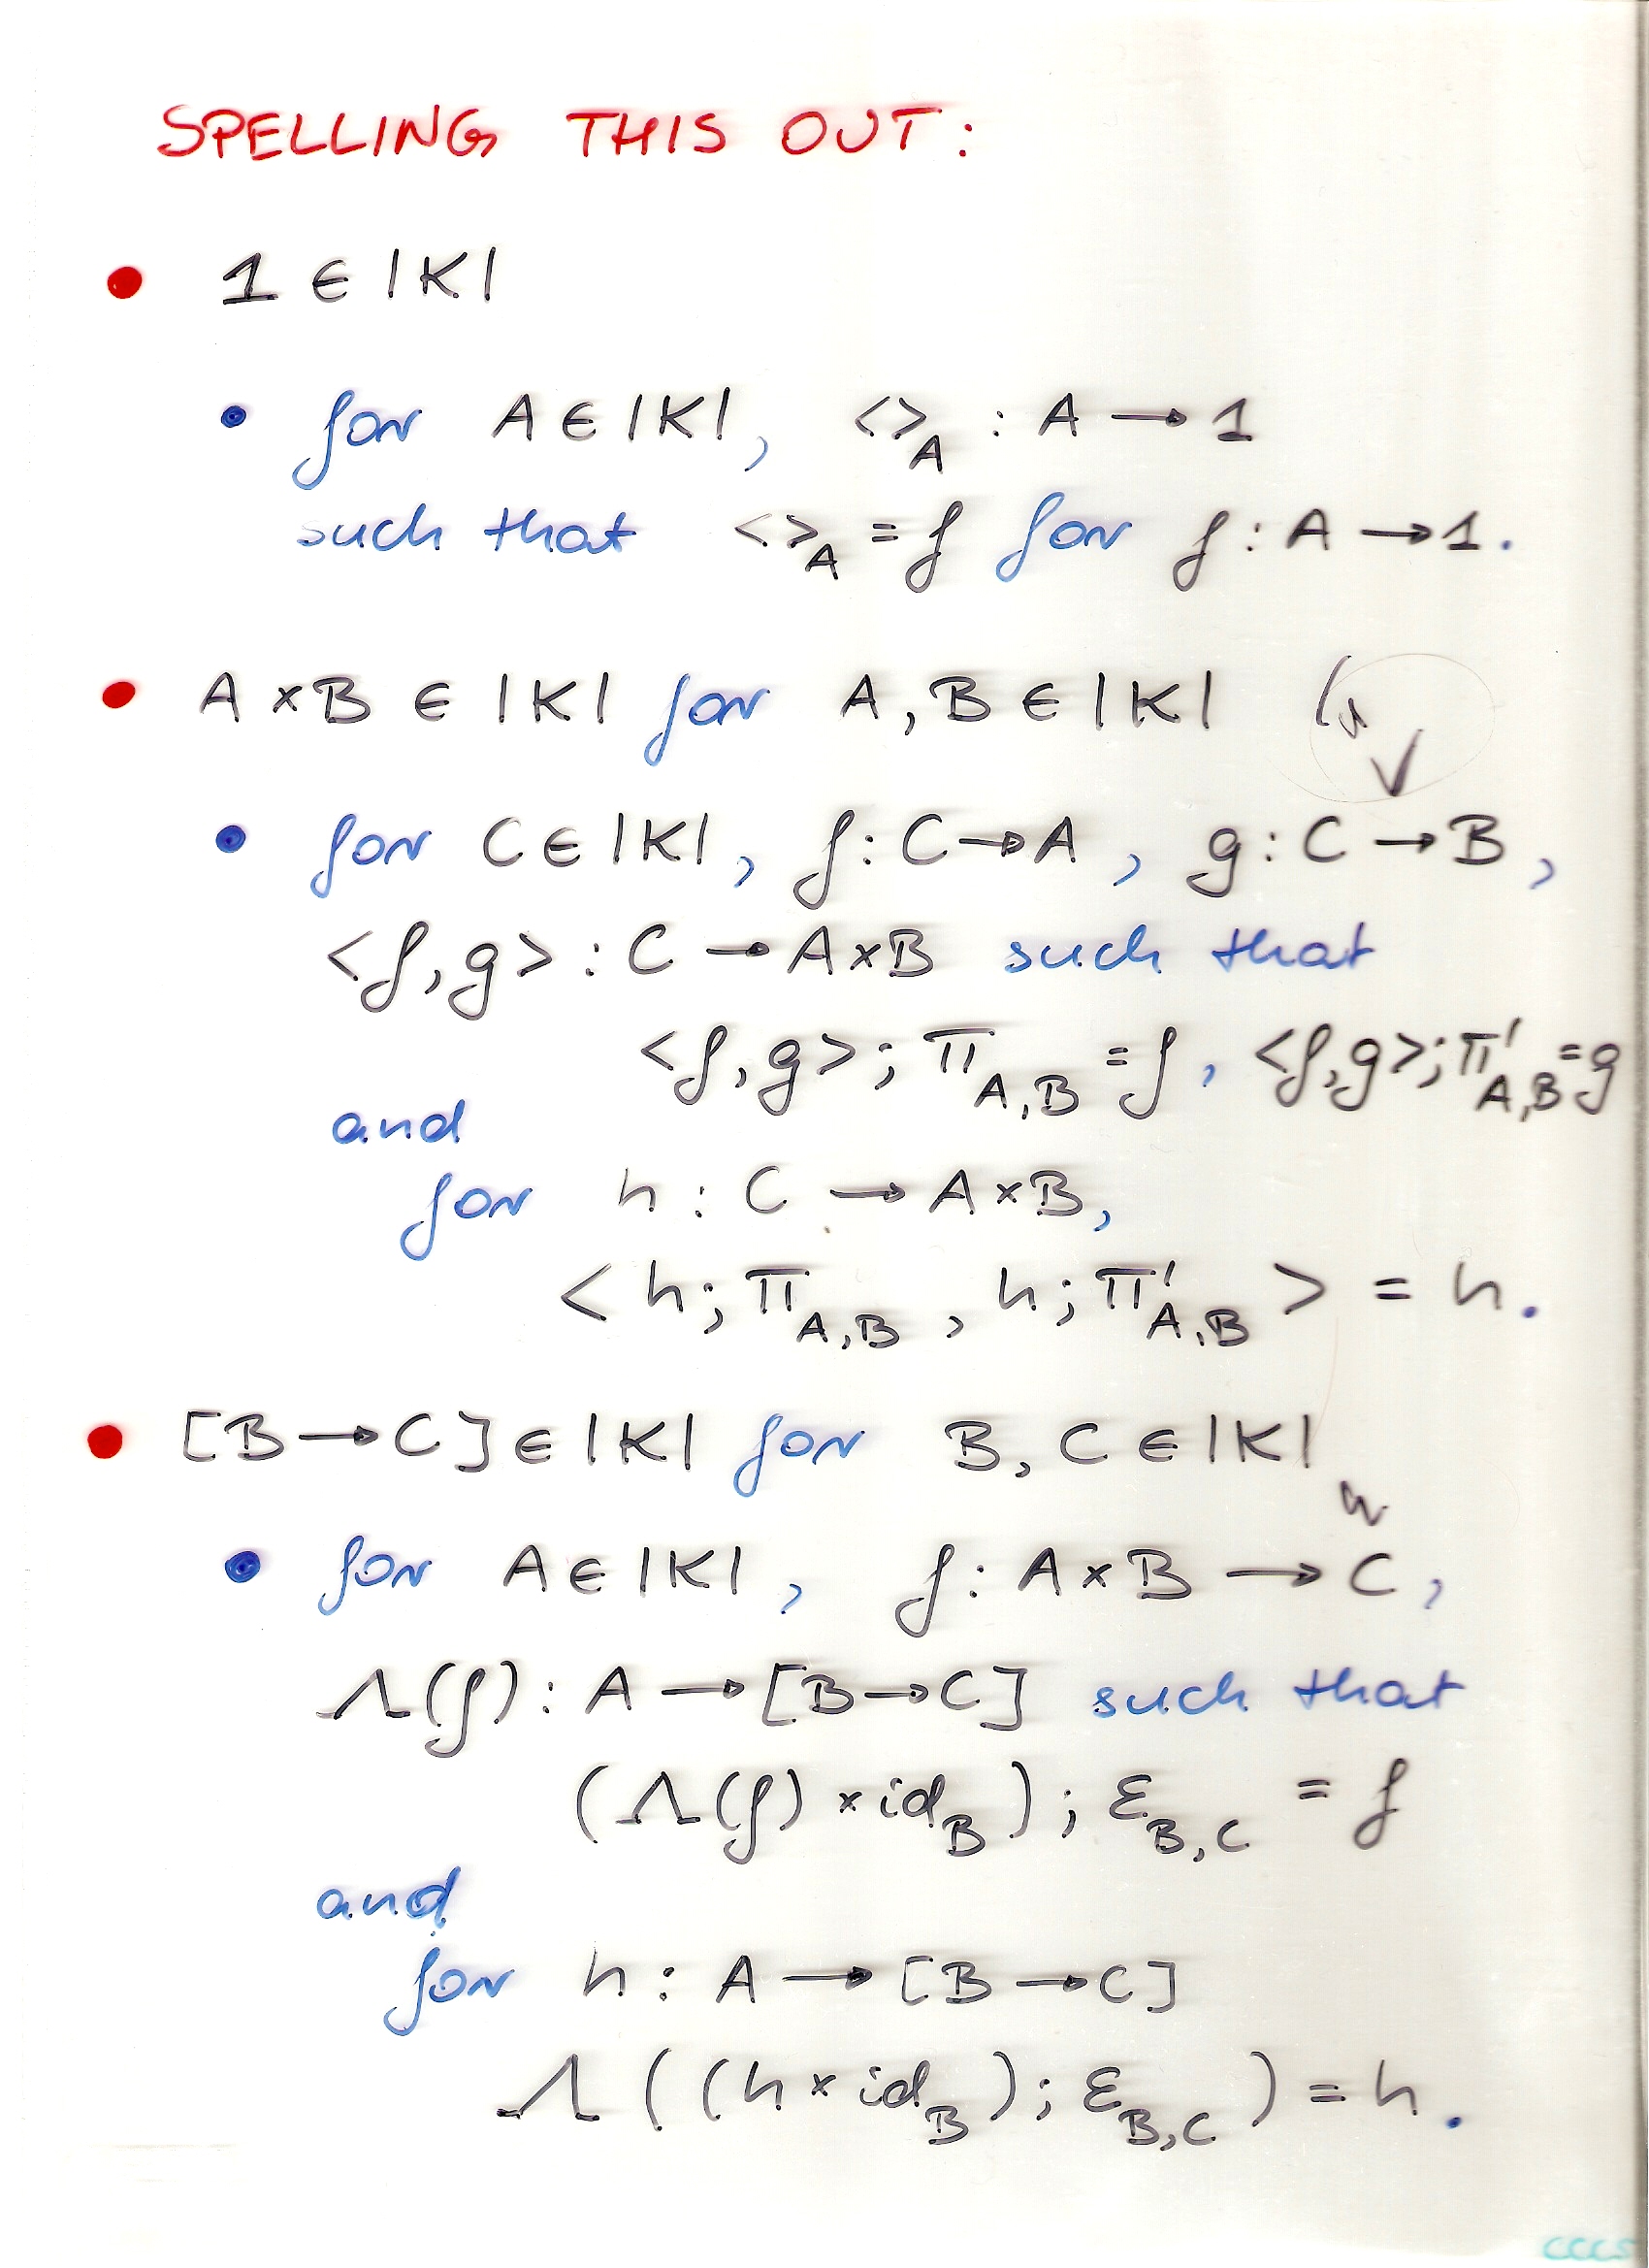 SPELLING THIS OUT:
• 1 ∈ |K|
• for A ∈ |K|, <>_A : A → 1
such that <>_A = f for f : A → 1.
• A × B ∈ |K| for A, B ∈ |K|
• for C ∈ |K|, f : C → A, g : C → B,
<f, g> : C → A × B such that
<f, g>; π_{A,B} = f, <f, g>; π'_{A,B} = g
and
for h : C → A × B,
<h; π_{A,B}, h; π'_{A,B}> = h.
• [B → C] ∈ |K| for B, C ∈ |K|
• for A ∈ |K|, f : A × B → C,
Λ(f) : A → [B → C] such that
(Λ(f) × id_B); ε_{B,C} = f
and
for h : A → [B → C]
Λ((h × id_B); ε_{B,C}) = h.
CCCS